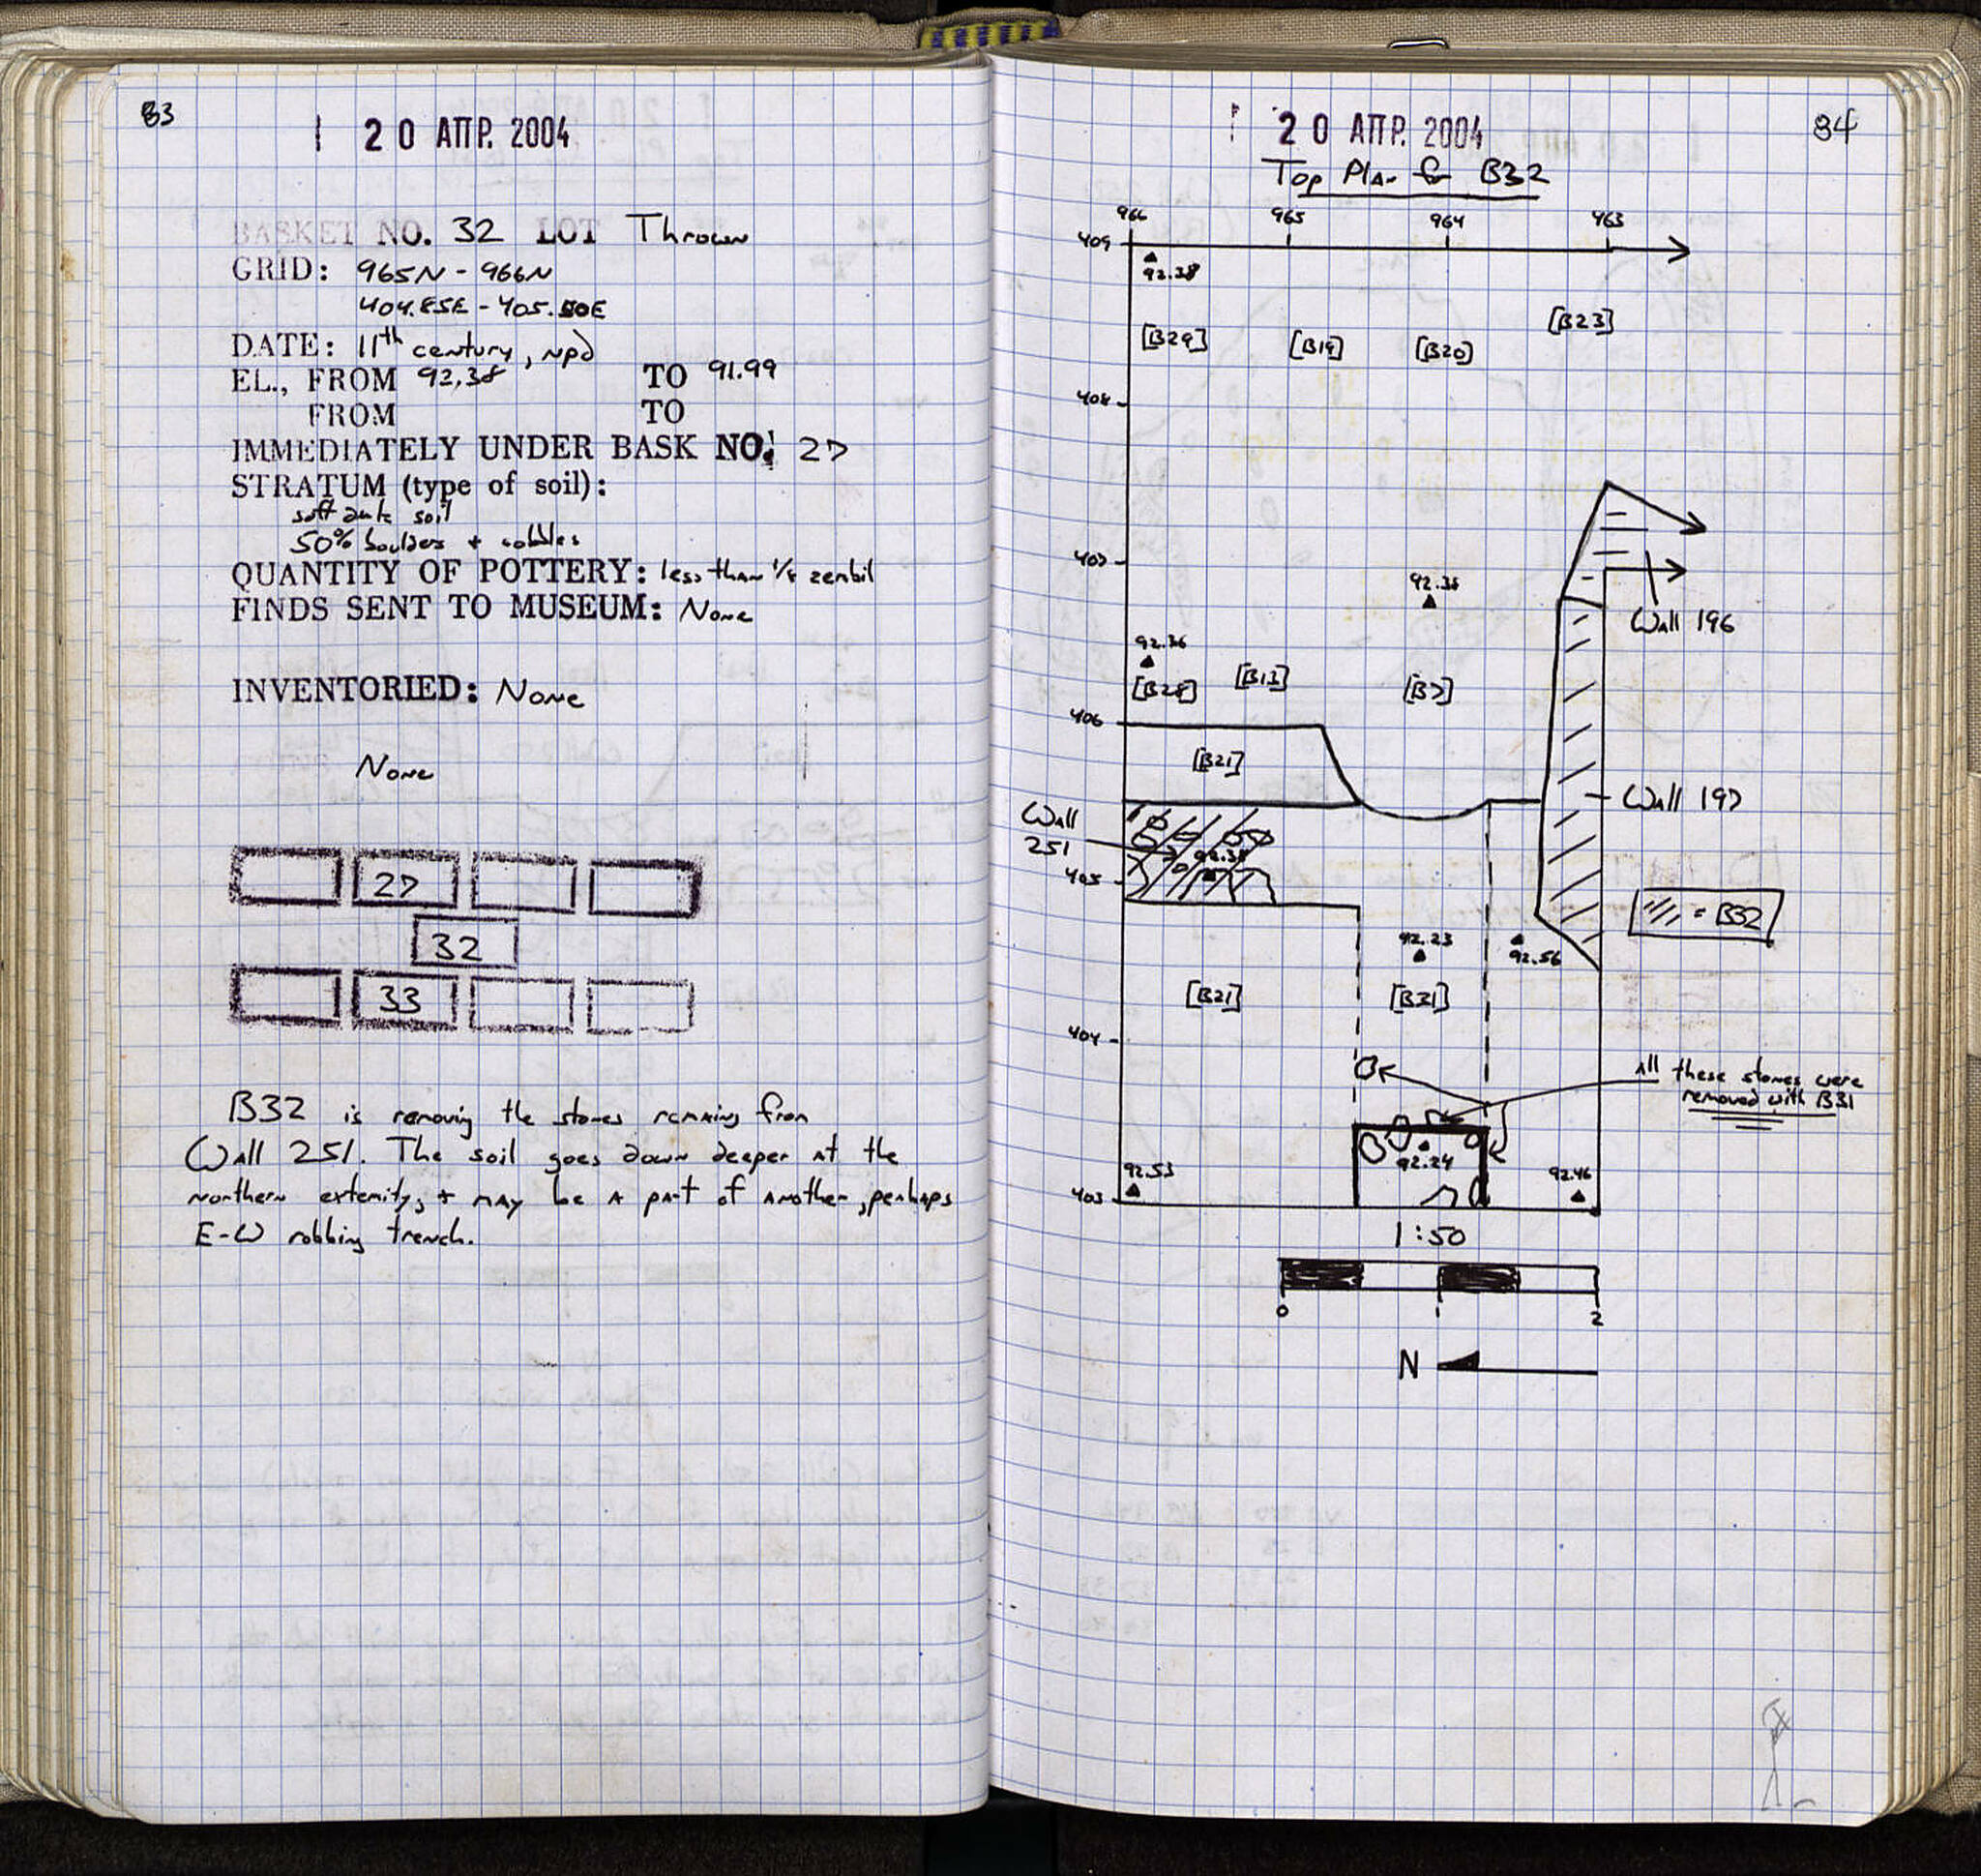 83
20 ΑΠΡ. 2004
BASKET NO. 32 LOT Thrown
GRID: 965N - 966N
404.85E - 405.50E
DATE: 11th century, npd
EL., FROM 92.38 TO 91.99
FROM TO
IMMEDIATELY UNDER BASK NO. 27
STRATUM (type of soil):
soft dark soil
50% boulders + cobbles
QUANTITY OF POTTERY: less than 1/8 zembil
FINDS SENT TO MUSEUM: None
INVENTORIED: None
None
27
32
33
B32 is removing the stones remaing from
Wall 251. The soil goes down deeper at the
northern extemity, + may be a part of another, perhaps
E-W robbing trench.
84
20 ΑΠΡ. 2004
Top Plan for B32
966 965 964 963
409
92.38
[B23]
[B29] [B19] [B20]
408
407
92.38
Wall 196
92.36
[B28] [B13] [B7]
406
[B21]
Wall 197
Wall
251
92.38
405
= B32
92.23
92.56
[B21] [B31]
404
All these stones were
removed with B31
92.53 92.24 92.46
403
1:50
0 1 2
N